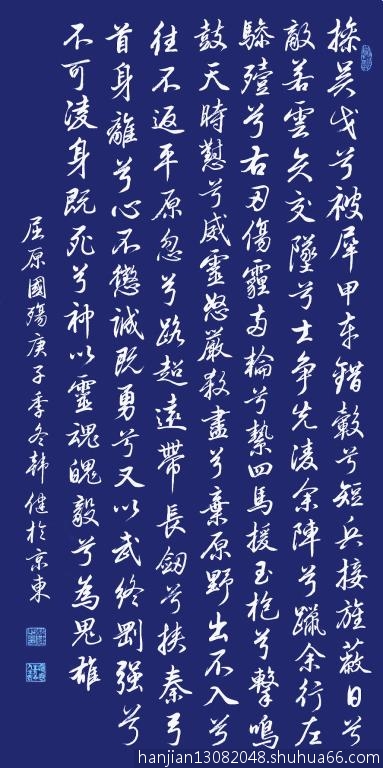 操吴戈兮被犀甲車錯轂兮短兵接旌蔽日兮
敵若雲矢交墜兮士争先凌余陣兮躐余行左
驂殪兮右刃傷霾兩輪兮縶四馬援玉枹兮擊鳴
鼓天時懟兮威靈怒嚴殺盡兮棄原野出不入兮
往不返平原忽兮路超遠帶長劒兮挾秦弓
首身離兮心不懲誠既勇兮又以武終剛强兮
不可凌身既死兮神以靈魂魄毅兮為鬼雄
屈原國殤庚子季冬韩健於京東
hanjian13082048.shuhua66.com